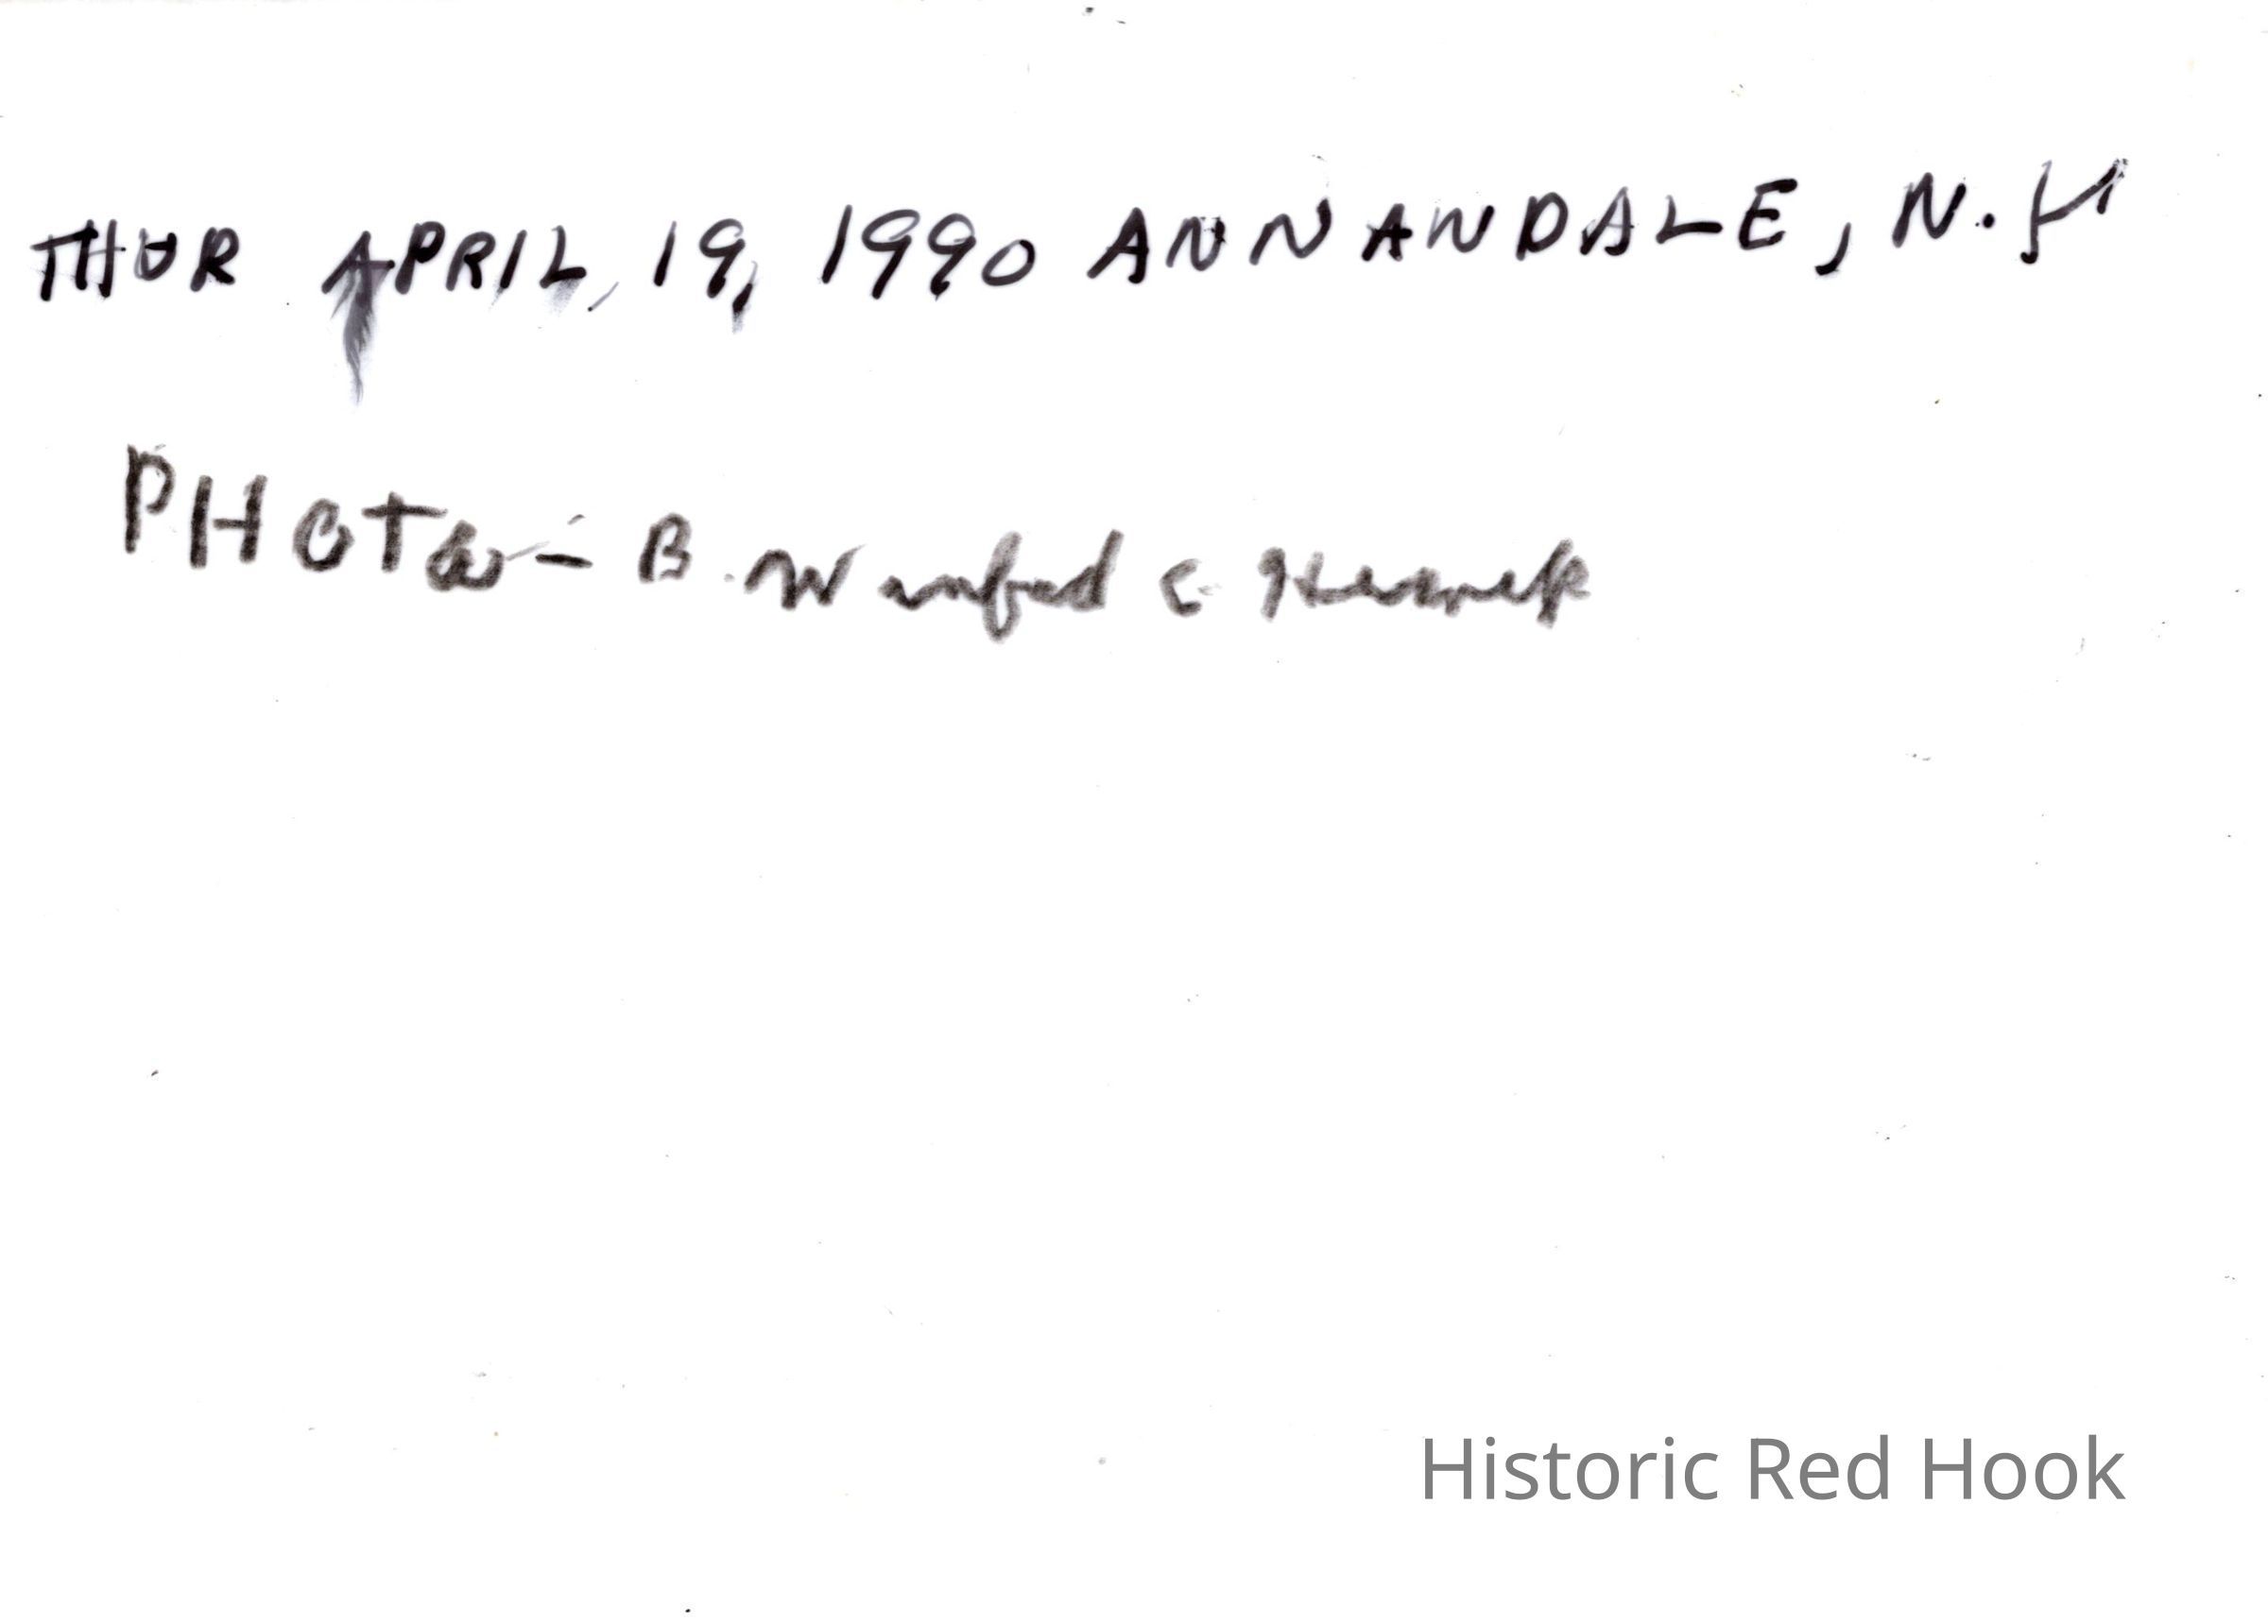 THUR APRIL, 19, 1990 ANNANDALE, N.Y
PHOTO - B. W
Historic Red Hook